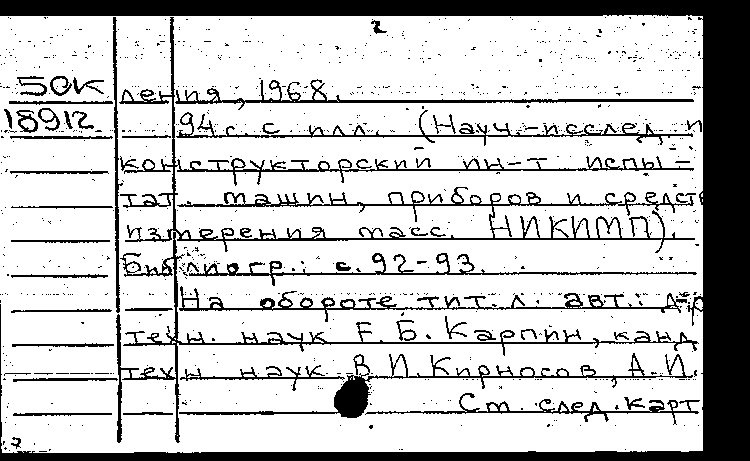 2
50К ления, 1968.
18912 94 с. с илл. (Науч.-исслед. и
конструкторский ин-т испы-
тат. машин, приборов и средств
измерения масс. НИКИМП).
Библиогр.: с. 92-93.
На обороте тит. л. авт.: д-р
техн. наук Е. Б. Карпин, канд.
техн. наук В. И. Кирносов, А. И.
См. след. карт.